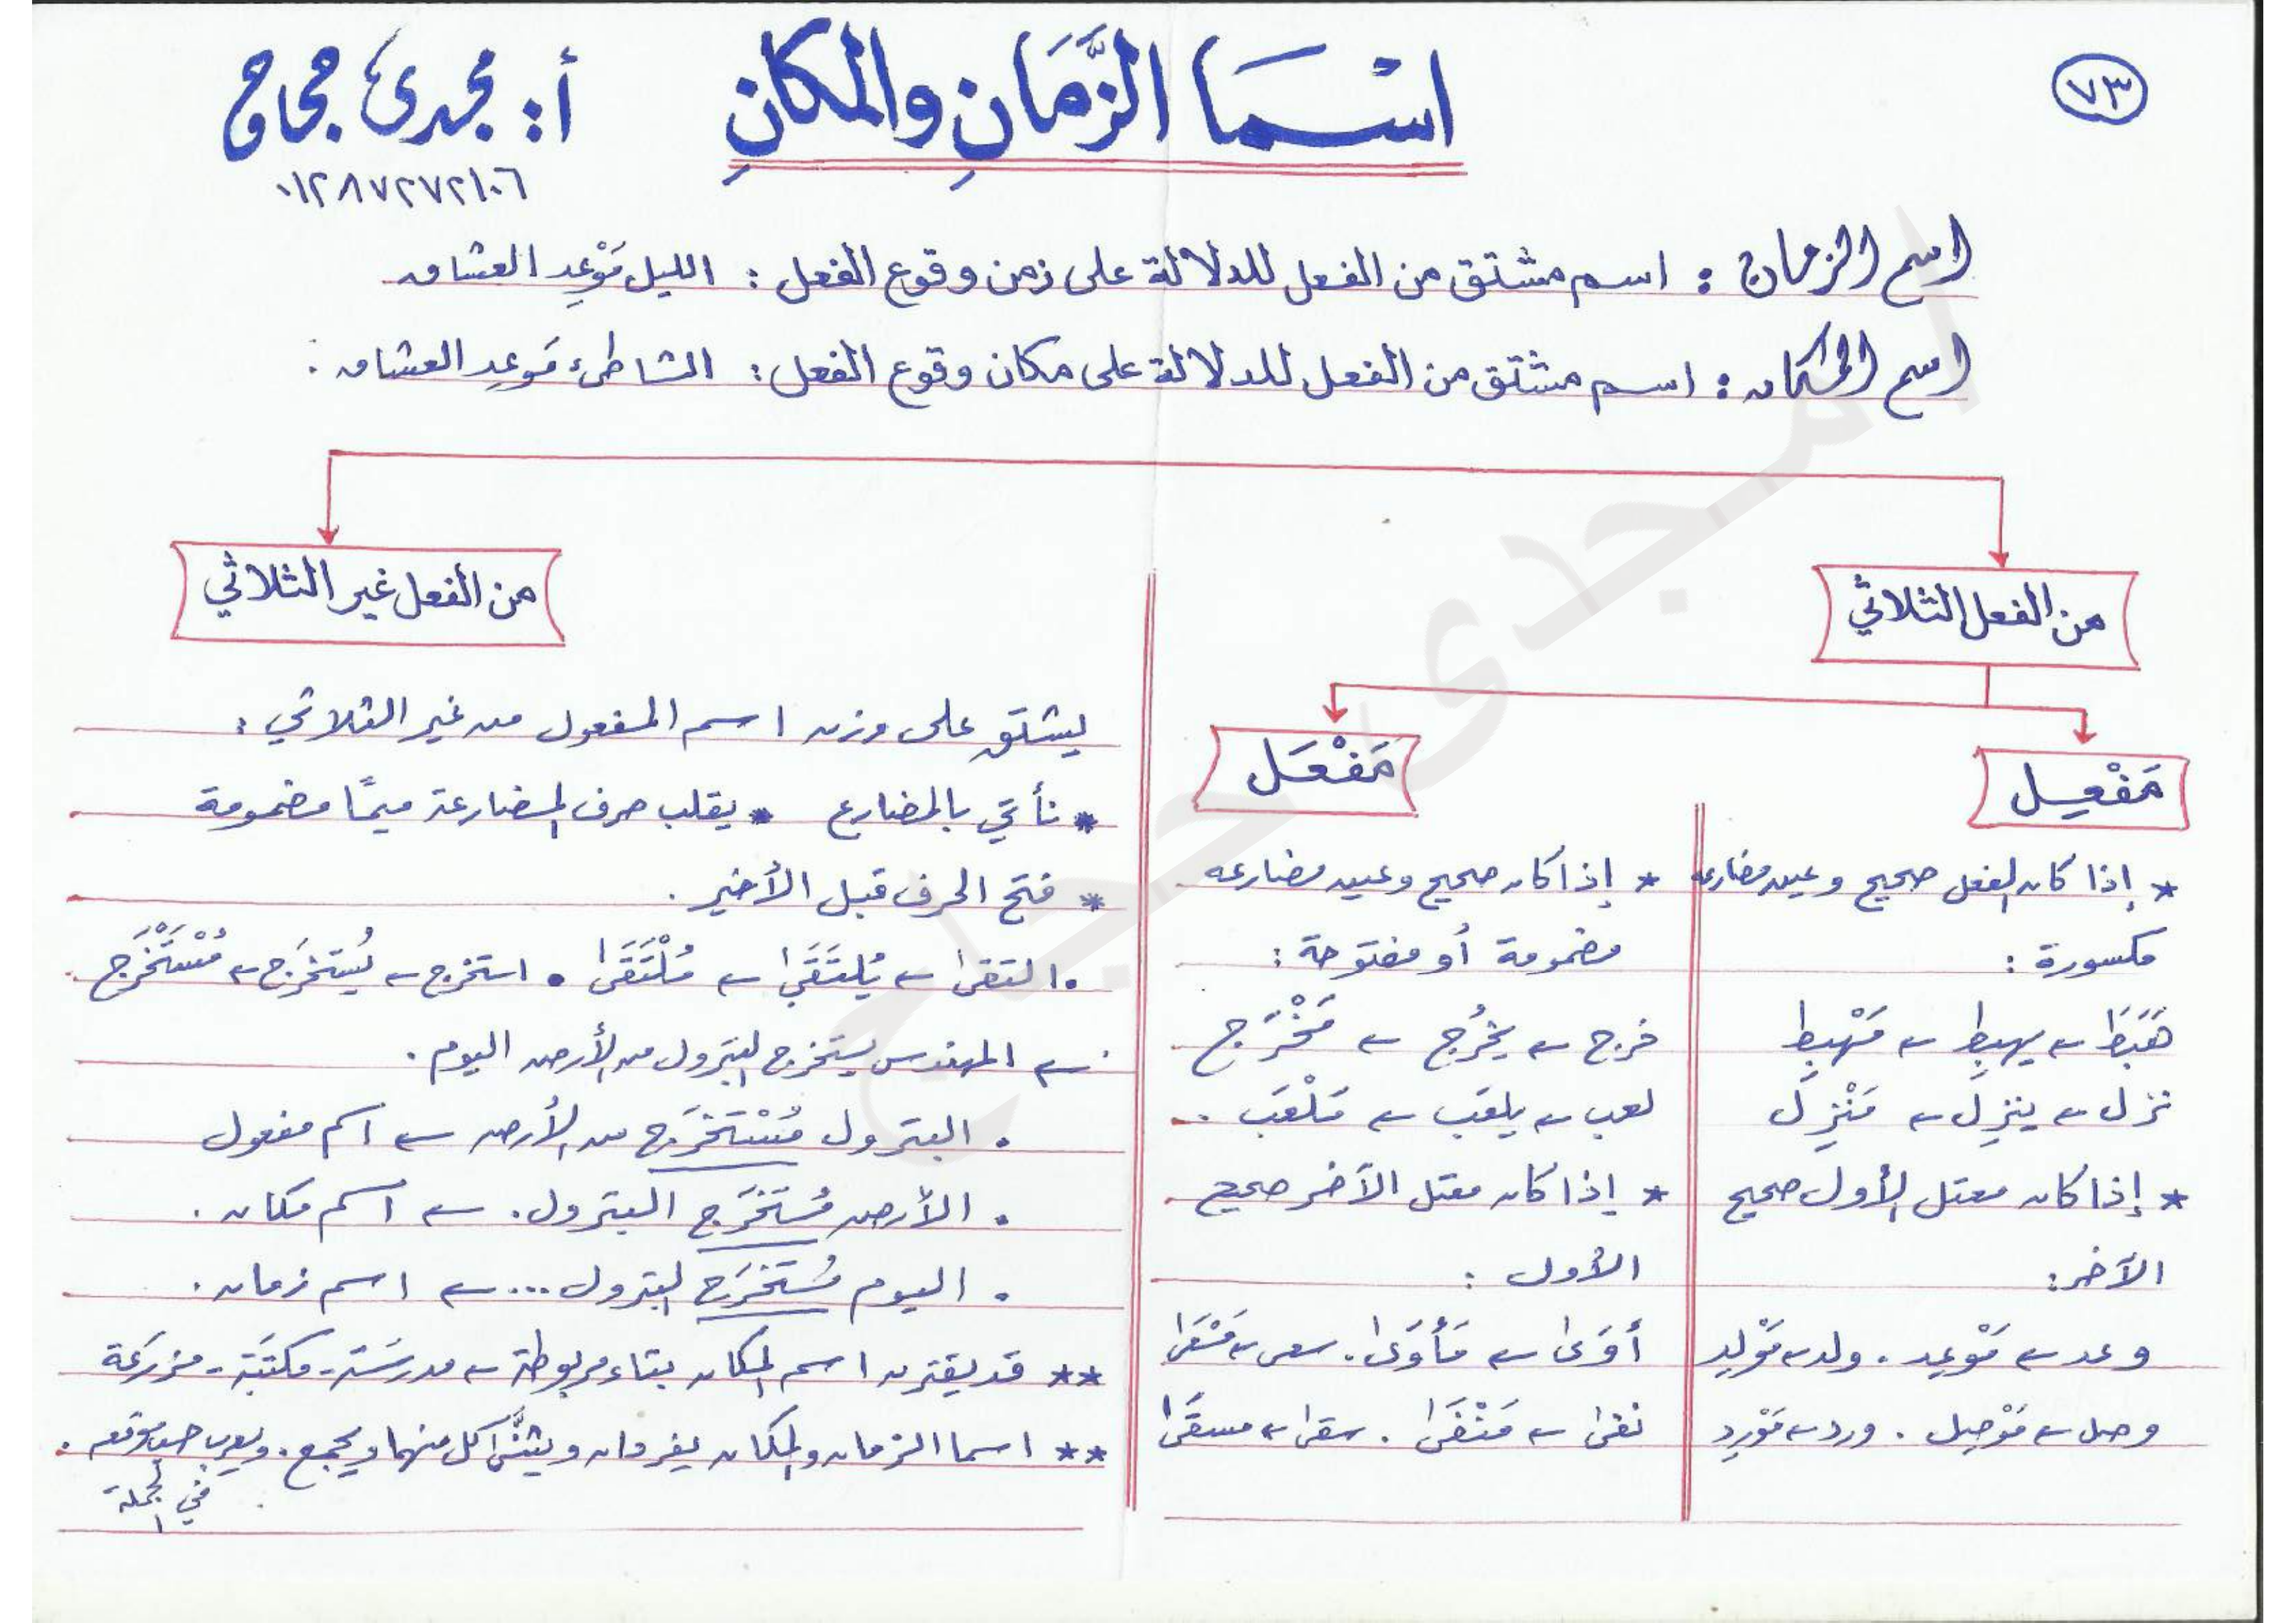 ٧٣
اسْمَا الزَّمَانِ والمكانِ
أ: مجدى حجاج
٠١٢٨٧٢٧٢١٠٦
اسم الزمان : اسم مشتق من الفعل للدلالة على زمن وقوع الفعل : الليل مَوْعِد العشاق
اسم المكان : اسم مشتق من الفعل للدلالة على مكان وقوع الفعل : الشاطئ مَوعِد العشاق .
من الفعل الثلاثي
من الفعل غير الثلاثي
مَفْعِل
* إذا كان الفعل صحيح وعين مضارعه
مكسورة :
هَبَطَ ← يهبِط ← مَهْبِط
نزل ← ينزِل ← مَنْزِل
* إذا كان معتل الأول صحيح
الآخر :
وعد ← مَوْعِد . ولد ← مَوْلِد
وصل ← مَوْصِل . ورد ← مَوْرِد
مَفْعَل
* إذا كان صحيح وعين مضارعه
مضمومة أو مفتوحة :
خرج ← يخرُج ← مَخْرَج
لعب ← يلعَب ← مَلْعَب .
* إذا كان معتل الآخر صحيح
الأول :
أوَى ← مَأْوَى . سعى ← مَسْعَى
نفى ← مَنْفَى . سقى ← مسقَى
يشتق على وزن اسم المفعول من غير الثلاثي :
* نأتي بالمضارع * يقلب حرف المضارعة ميمًا مضمومة
* فتح الحرف قبل الأخير .
• التقى ← يُلتَقَى ← مُلْتَقَى • استخرج ← يُستخرَج ← مُسْتَخْرَج
← المهندس يستخرج البترول من الأرض اليوم .
• البترول مُسْتَخْرَج من الأرض ← اسم مفعول
• الأرض مُسْتَخْرَج البترول . ← اسم مكان .
• اليوم مُسْتَخْرَج البترول ... ← اسم زمان .
** قد يقترن اسم المكان بتاء مربوطة ← مدرسَة - مكتبَة - مزرَعَة
** اسما الزمان والمكان يفردان ويثنَّى كل منهما ويجمع . ويعرب حسب موقعه .
في الجملة
أ مجدى حجاج